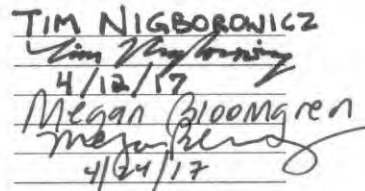 TIM NIGBOROWICZ
Tim Nigborowicz
4/12/17
Megan Bloomgren
Megan
4/24/17